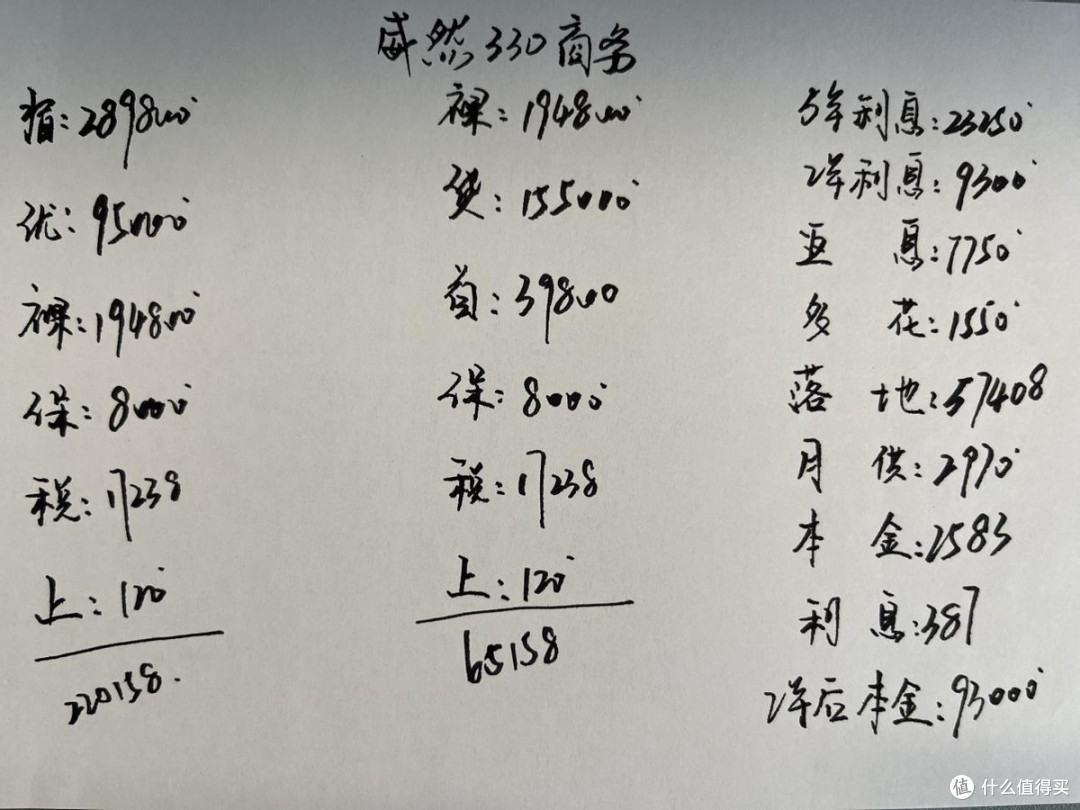 威然330商务
指:289800
优:95000
裸:194800
保:8000
税:17238
上:120
220158.
裸:194800
贷:155000
首:39800
保:8000
税:17238
上:120
65158
5年利息:23250
2年利息:9300
返 息:7750
多 花:1550
落 地:57408
月 供:2970
本 金:2583
利 息:387
2年后本金:93000
值 什么值得买